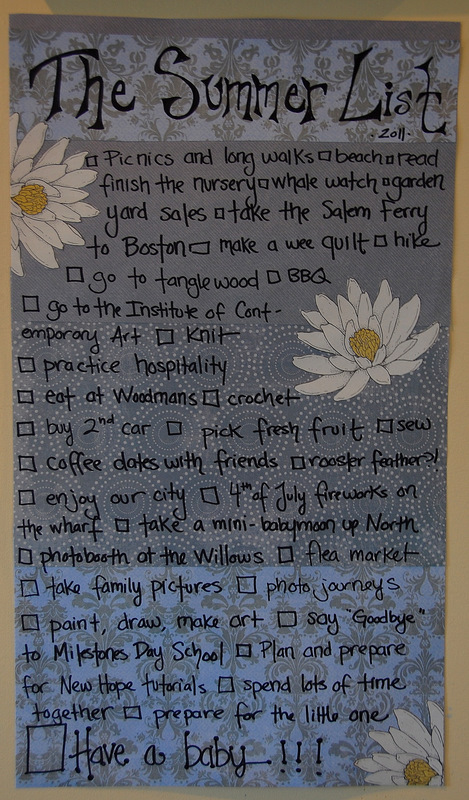 The Summer List
·2011·
□ Picnics and long walks □ beach □ read
finish the nursery □ whale watch □ garden
yard sales □ take the Salem Ferry
to Boston □ make a wee quilt □ hike
□ go to tanglewood □ BBQ
□ go to the Institute of Cont-
emporary Art □ Knit
□ practice hospitality
□ eat at Woodmans □ crochet
□ buy 2nd car □ pick fresh fruit □ sew
□ coffee dates with friends □ rooster feather?!
□ enjoy our city □ 4th of July fireworks on
the wharf □ take a mini-babymoon up North
□ photobooth at the Willows □ flea market
□ take family pictures □ photo journeys
□ paint, draw, make art □ say "Goodbye"
to Milestones Day School □ Plan and prepare
for New Hope tutorials □ spend lots of time
together □ prepare for the little one
□ Have a baby...!!!